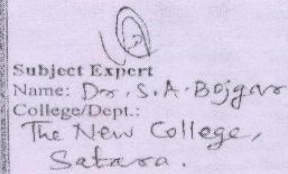 Subject Expert
Name: Dr. S. A. Bojgar
College/Dept.:
The New College,
Satara.